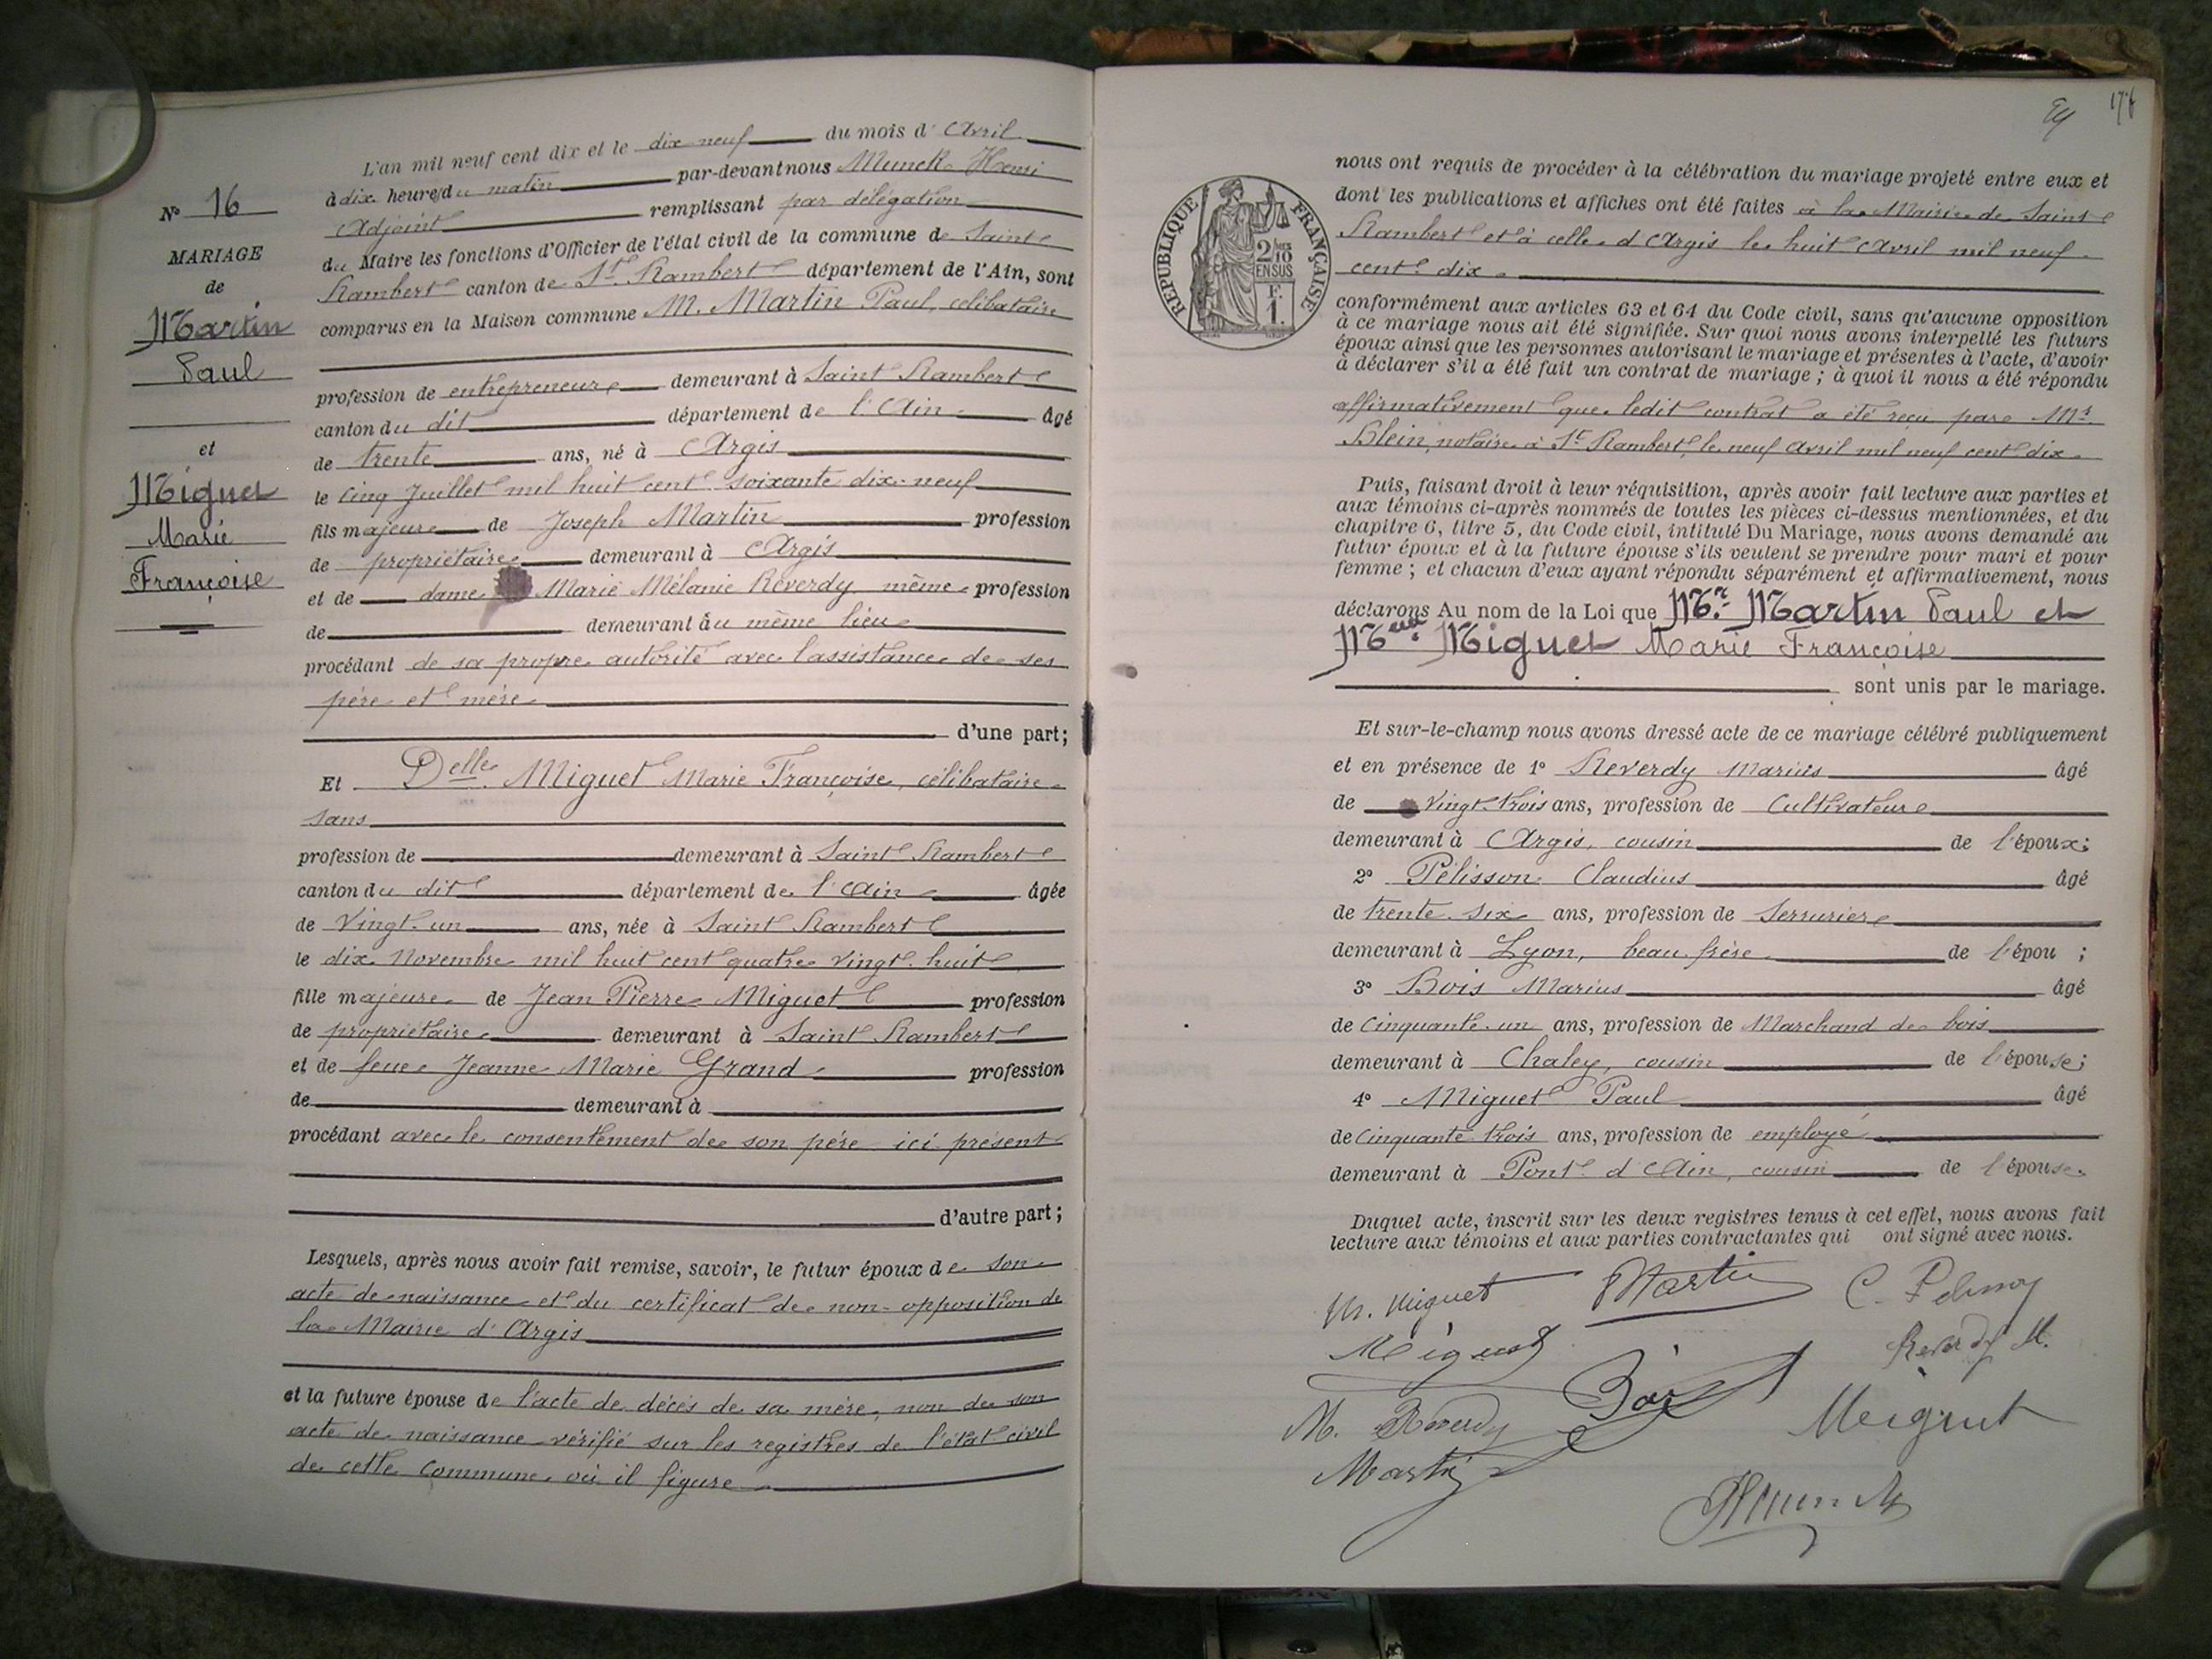 N° 16
MARIAGE
de
Martin
Paul
et
Miguet
Marie
Françoise
L'an mil neuf cent dix et le dix neuf du mois d'Avril
à dix heures du matin par-devant nous Munck Henri
Adjoint remplissant par délégation
du Maire les fonctions d'Officier de l'état civil de la commune de Saint
Rambert canton de St Rambert département de l'Ain, sont
comparus en la Maison commune M. Martin Paul, célibataire
profession de entrepreneur demeurant à Saint Rambert
canton du dit département de l'Ain âgé
de trente ans, né à Argis
le cinq Juillet mil huit cent soixante dix neuf
fils majeur de Joseph Martin profession
de propriétaire demeurant à Argis
et de dame Marie Mélanie Reverdy même profession
de demeurant au même lieu
procédant de sa propre autorité avec l'assistance de ses
père et mère
d'une part;
Et Delle Miguet Marie Françoise, célibataire
sans
profession de demeurant à Saint Rambert
canton du dit département de l'Ain âgée
de Vingt un ans, née à Saint Rambert
le dix Novembre mil huit cent quatre vingt huit
fille majeure de Jean Pierre Miguet profession
de propriétaire demeurant à Saint Rambert
et de feue Jeanne Marie Grand profession
de demeurant à
procédant avec le consentement de son père ici présent
d'autre part;
Lesquels, après nous avoir fait remise, savoir, le futur époux de son
acte de naissance et du certificat de non-opposition de
la Mairie d'Argis
et la future épouse de l'acte de décès de sa mère, non de son
acte de naissance vérifié sur les registres de l'état civil
de cette commune où il figure
RÉPUBLIQUE FRANÇAISE
2/10
EN SUS
F.
1.
nous ont requis de procéder à la célébration du mariage projeté entre eux et
dont les publications et affiches ont été faites à la Mairie de Saint
Rambert et à celle d'Argis le huit Avril mil neuf
cent dix
conformément aux articles 63 et 64 du Code civil, sans qu'aucune opposition
à ce mariage nous ait été signifiée. Sur quoi nous avons interpellé les futurs
époux ainsi que les personnes autorisant le mariage et présentes à l'acte, d'avoir
à déclarer s'il a été fait un contrat de mariage ; à quoi il nous a été répondu
affirmativement que ledit contrat a été reçu par Me
Blein, notaire à St Rambert, le neuf Avril mil neuf cent dix
Puis, faisant droit à leur réquisition, après avoir fait lecture aux parties et
aux témoins ci-après nommés de toutes les pièces ci-dessus mentionnées, et du
chapitre 6, titre 5, du Code civil, intitulé Du Mariage, nous avons demandé au
futur époux et à la future épouse s'ils veulent se prendre pour mari et pour
femme ; et chacun d'eux ayant répondu séparément et affirmativement, nous
déclarons Au nom de la Loi que Mr. Martin Paul et
Melle Miguet Marie Françoise
sont unis par le mariage.
Et sur-le-champ nous avons dressé acte de ce mariage célébré publiquement
et en présence de 1° Reverdy Marius âgé
de vingt-trois ans, profession de Cultivateur
demeurant à Argis, cousin de l'époux;
2° Pélisson Claudius âgé
de trente six ans, profession de Serrurier
demeurant à Lyon, beau frère de l'épou ;
3° Bois Marius âgé
de Cinquante-un ans, profession de Marchand de bois
demeurant à Chaley, cousin de l'épouse;
4° Miguet Paul âgé
de Cinquante trois ans, profession de employé
demeurant à Pont d'Ain, cousin de l'épouse.
Duquel acte, inscrit sur les deux registres tenus à cet effet, nous avons fait
lecture aux témoins et aux parties contractantes qui ont signé avec nous.
M. Miguet PMartin C. Pelisson
Miguet Reverdy M.
M. Reverdy Bois Miguet
Martin
HMunck